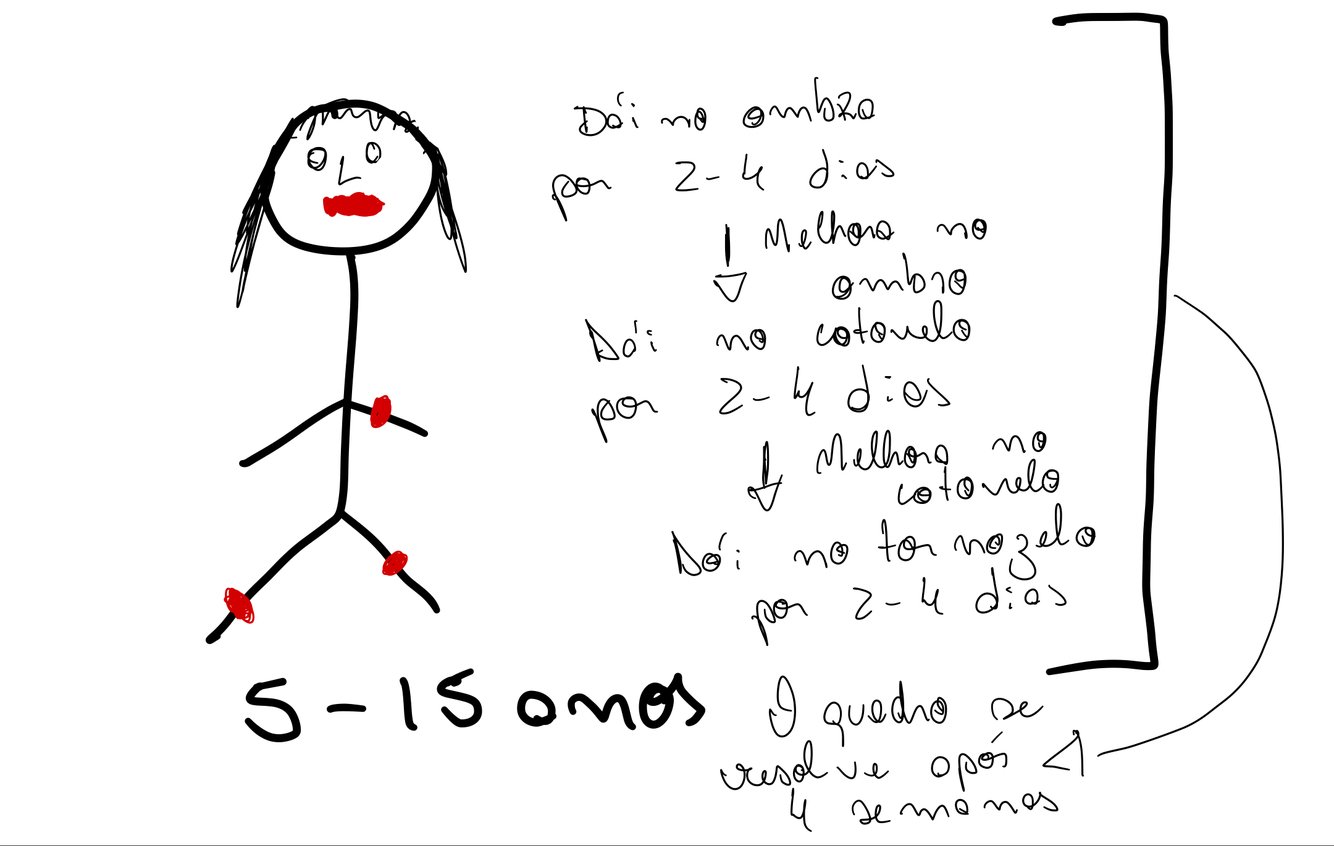 Dói no ombro
por 2-4 dias
Melhora no
ombro
Dói no cotovelo
por 2-4 dias
Melhora no
cotovelo
Dói no tornozelo
por 2-4 dias
5-15 anos
O quadro se
resolve após
4 semanas